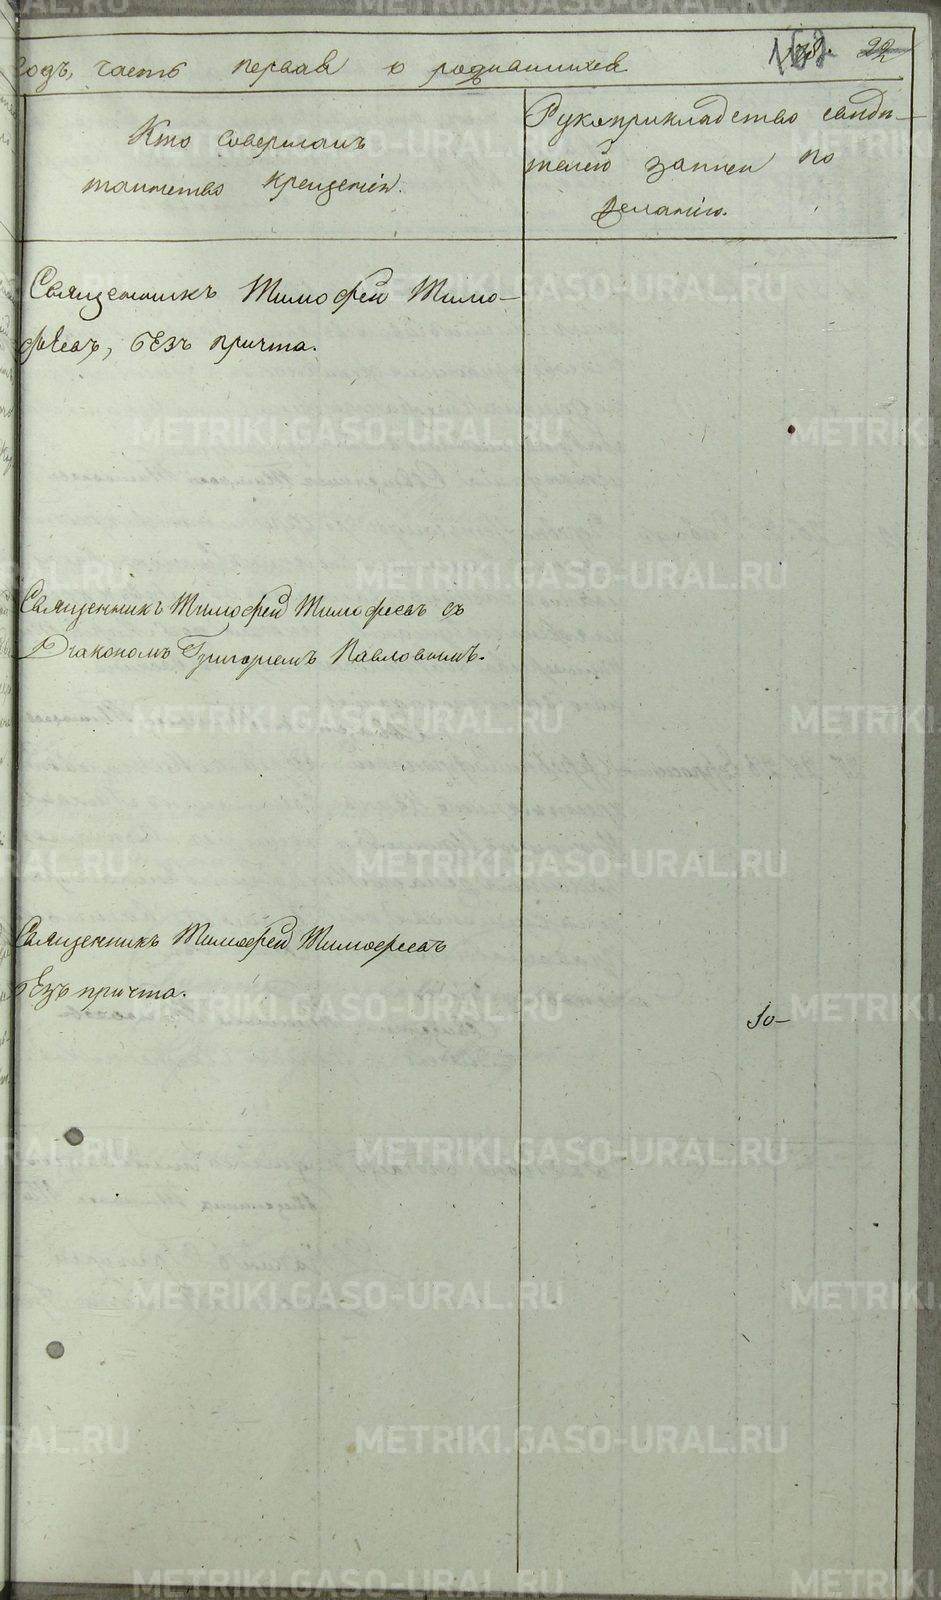 годъ, часть первая о родившихся
22
Кто совершалъ
таинство крещенія.
Рукоприкладство свидѣ-
телей записи по
желанію.
Священникъ Тимофей Тимо-
фѣевъ, безъ причта.
Священникъ Тимофей Тимофеевъ съ
Діакономъ Григоріемъ Павловымъ.
Священникъ Тимофей Тимофеевъ
безъ причта.
METRIKI.GASO-URAL.RU